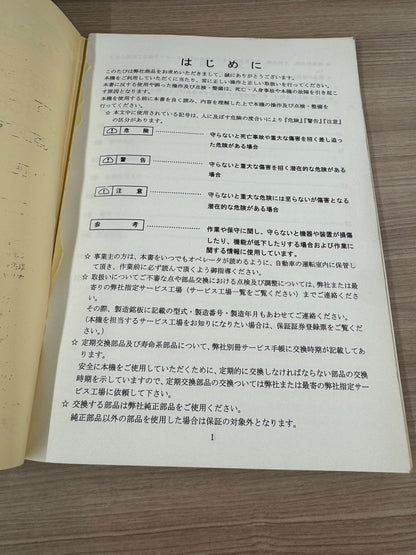 はじめに
このたびは弊社商品をお求めいただきまして、誠にありがとうございます。
本機をご利用していただくに当たり、常に正しい操作と正しい取扱いを行ってください。
本書に反する使用や誤った操作及び点検・整備は、死亡・人身事故や本機の故障を引き起こ
す原因となります。
本機を使用する前に本書を良く読み、内容を理解した上で本機の操作及び点検・整備を
行ってください。
☆ 本文中に使用されている記号は、人に及ぼす危険の度合いにより『危険』『警告』『注意』
の区分があります。
危険 守らないと死亡事故や重大な傷害を招く差し迫っ
た危険がある場合
警告 守らないと重大な傷害を招く潜在的な危険がある
場合
注意 守らないと重大な傷害には至らないが傷害となる
潜在的な危険がある場合
参考 作業や保守に関し、守らないと機器や装置が損傷
したり、機能が低下したりする場合および作業に
関する情報に使用しています。
☆ 事業主の方は、本書をいつでもオペレータが読めるように、自動車の運転室内に保管し
て頂き、作業前に必ず読んで頂くよう御指導ください。
☆ 取扱いについてご不審な点や部品交換における点検及び調整については、弊社または最
寄りの弊社指定サービス工場(サービス工場一覧をご覧ください)までご連絡くださ
い。
その際、製造銘板に記載の型式・製造番号・製造年月もあわせてご連絡ください。
(本機を担当するサービス工場をお知りになりたい場合は、保証証券登録票をご覧くだ
さい。)
☆ 定期交換部品及び寿命系部品について、弊社別冊サービス手帳に交換時期が記載してあ
ります。
安全に本機をご使用していただくために、定期的に交換しなければならない部品の交換
時期を示していますので、定期交換部品の交換については弊社または最寄の弊社指定サー
ビス工場に依頼して下さい。
☆ 交換する部品は弊社純正部品をご使用ください。
純正部品以外の部品を使用した場合は保証の対象外となります。
1